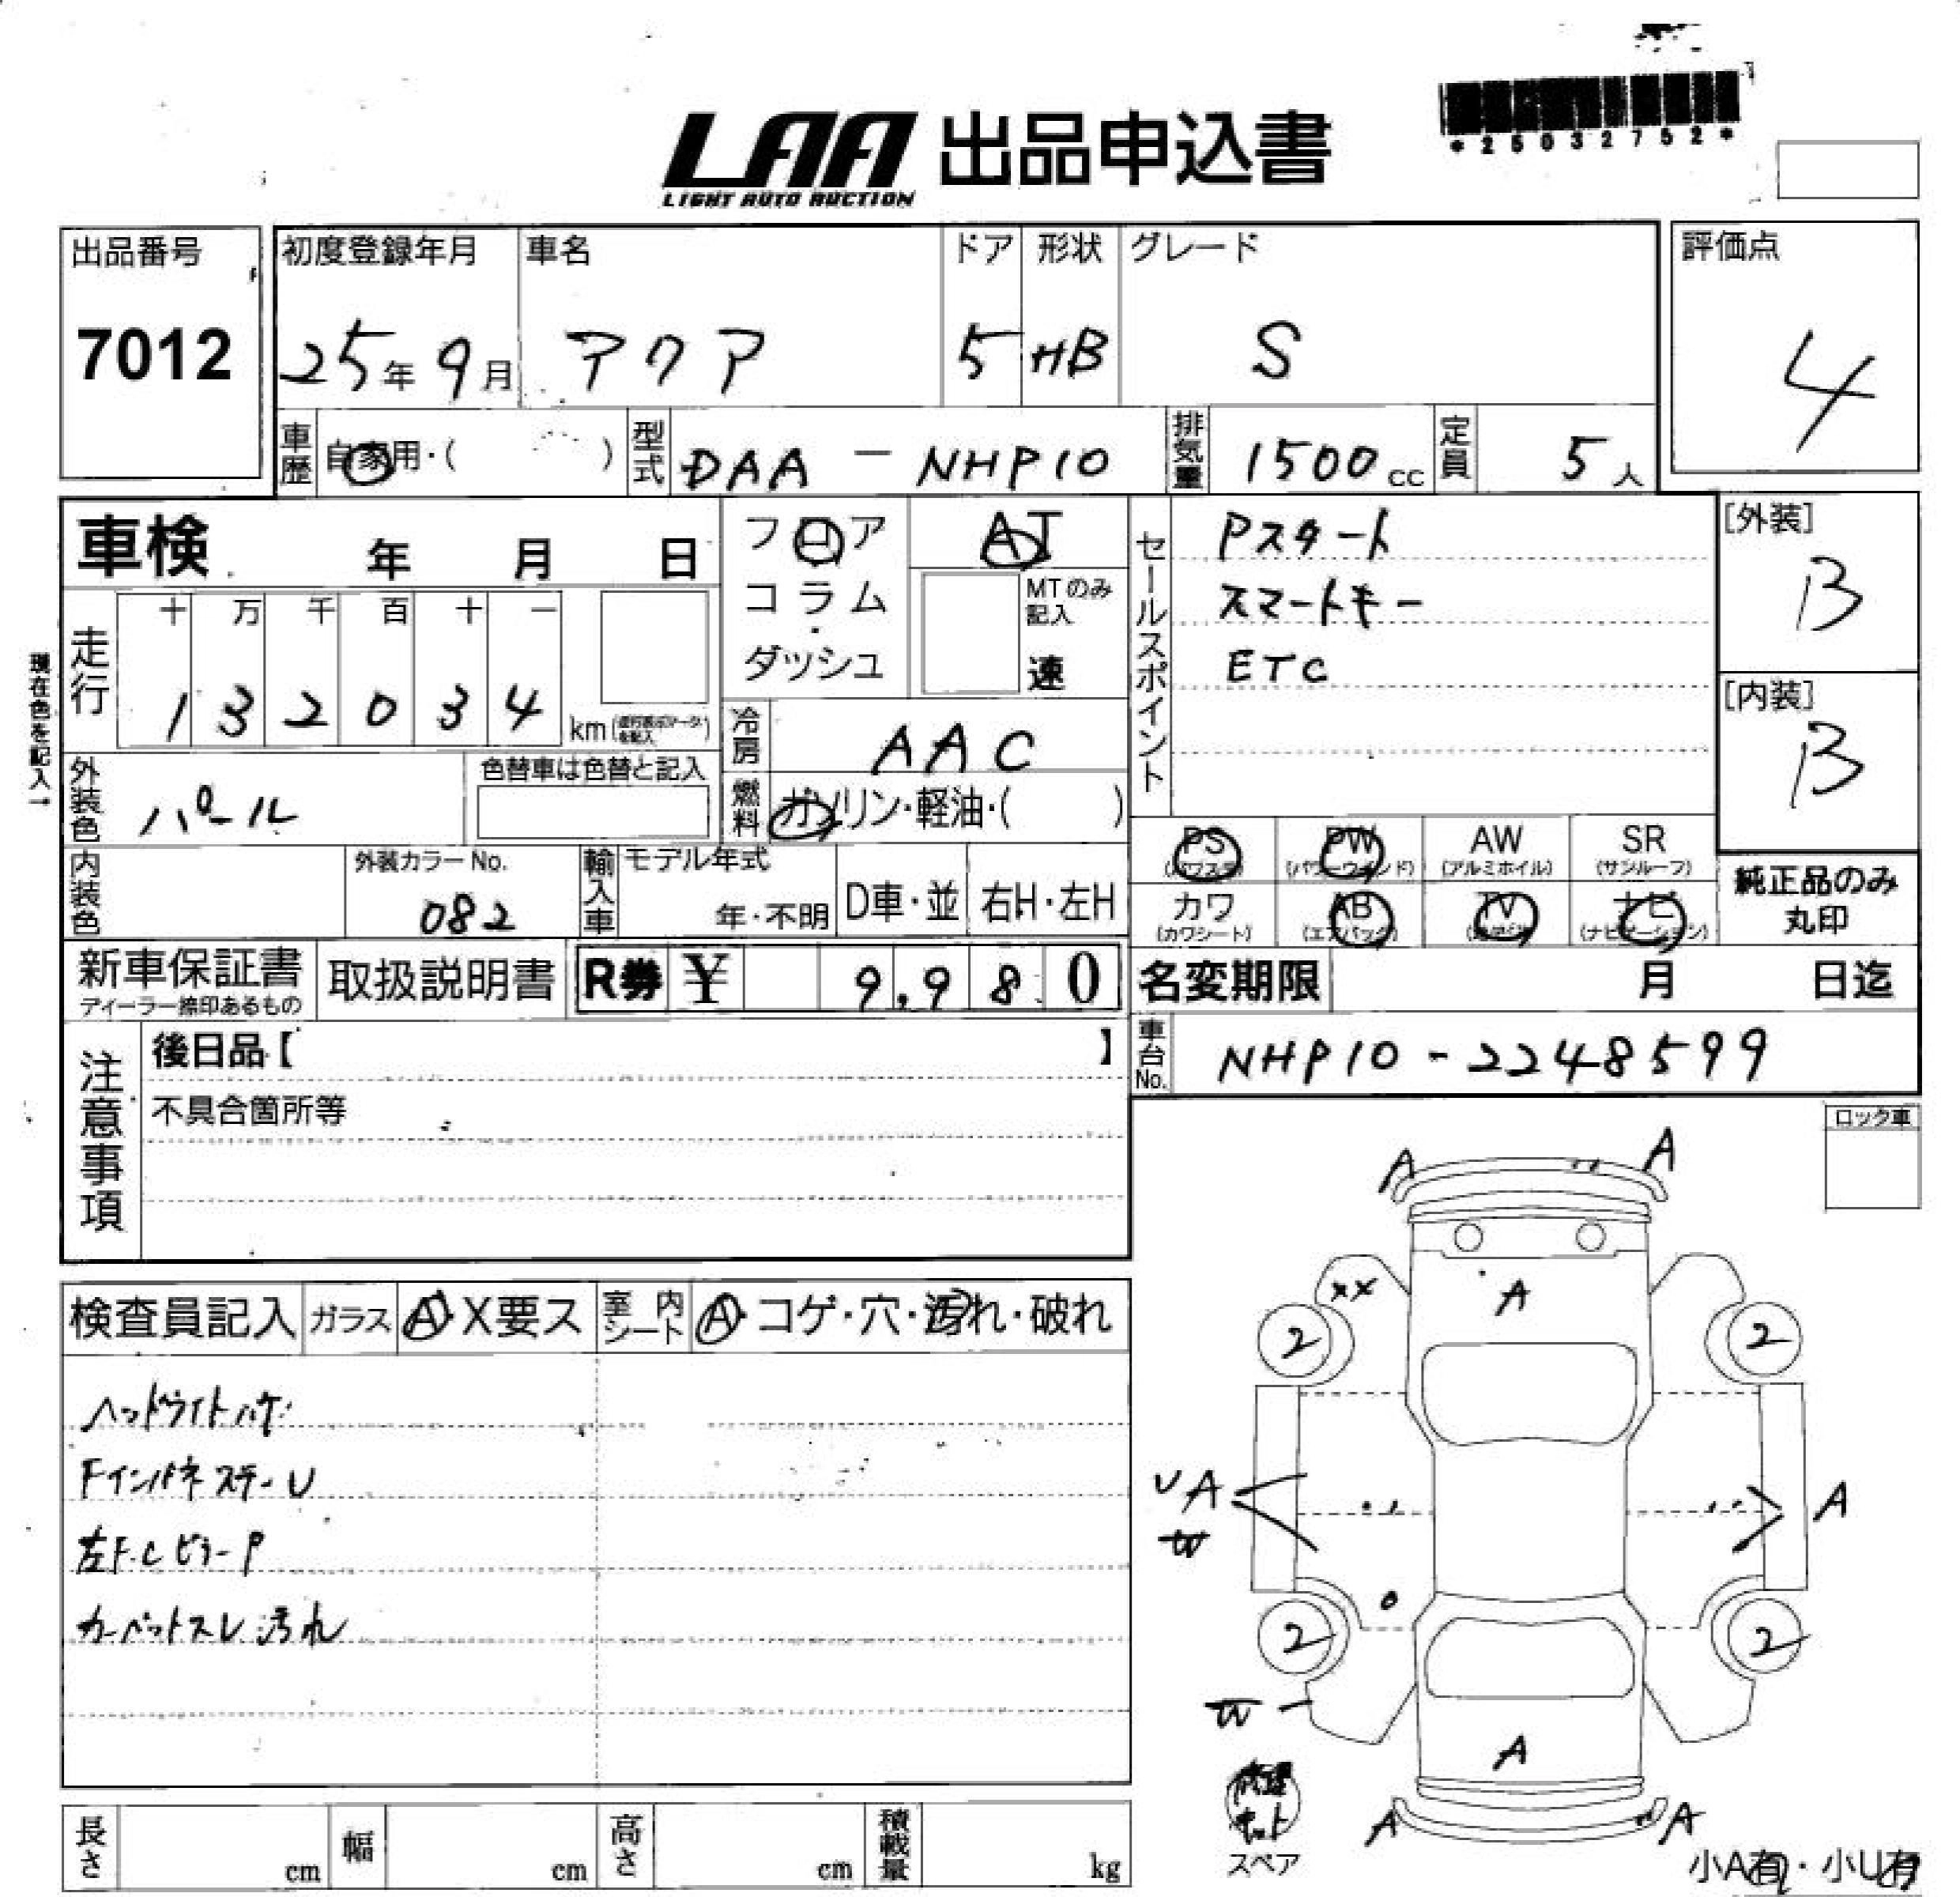 *25032752*
LAA 出品申込書
LIGHT AUTO AUCTION
出品番号 7012
初度登録年月 25年9月
車名 アクア
ドア 5
形状 HB
グレード S
評価点 4
車歴 自家用・( )
型式 DAA-NHP10
排気量 1500cc
定員 5人
車検 年 月 日
フロア
コラム
ダッシュ
AT
MTのみ記入
速
セールスポイント
Pスタート
スマートキー
ETC
[外装] B
[内装] B
現在色を記入→
走行
十 万 千 百 十 一
1 3 2 0 3 4 km
冷房 AAC
燃料 ガソリン・軽油・( )
外装色 パール
色替車は色替と記入
内装色
外装カラーNo. 082
輸入車
モデル年式
年・不明
D車・並
右H・左H
PS (パワステ)
PW (パワーウィンド)
AW (アルミホイル)
SR (サンルーフ)
カワ (カワシート)
AB (エアバック)
TV
ナビ (ナビゲーション)
純正品のみ
丸印
新車保証書
ディーラー捺印あるもの
取扱説明書
R券 ¥ 9,980
名変期限 月 日迄
車台No. NHP10-2248599
注意事項
後日品【 】
不具合箇所等
ロック車
検査員記入
ガラス A・X要ス
室内シート A・コゲ・穴・汚れ・破れ
ヘッドライトハゲ
FインパネステーU
左F.CピラーP
カーペットスレ汚れ
A A
XX A
2 2
UA A
W
2 2
W
A
A A
修理
キット
スペア
小A有・小U有
長さ cm
幅 cm
高さ cm
積載量 kg